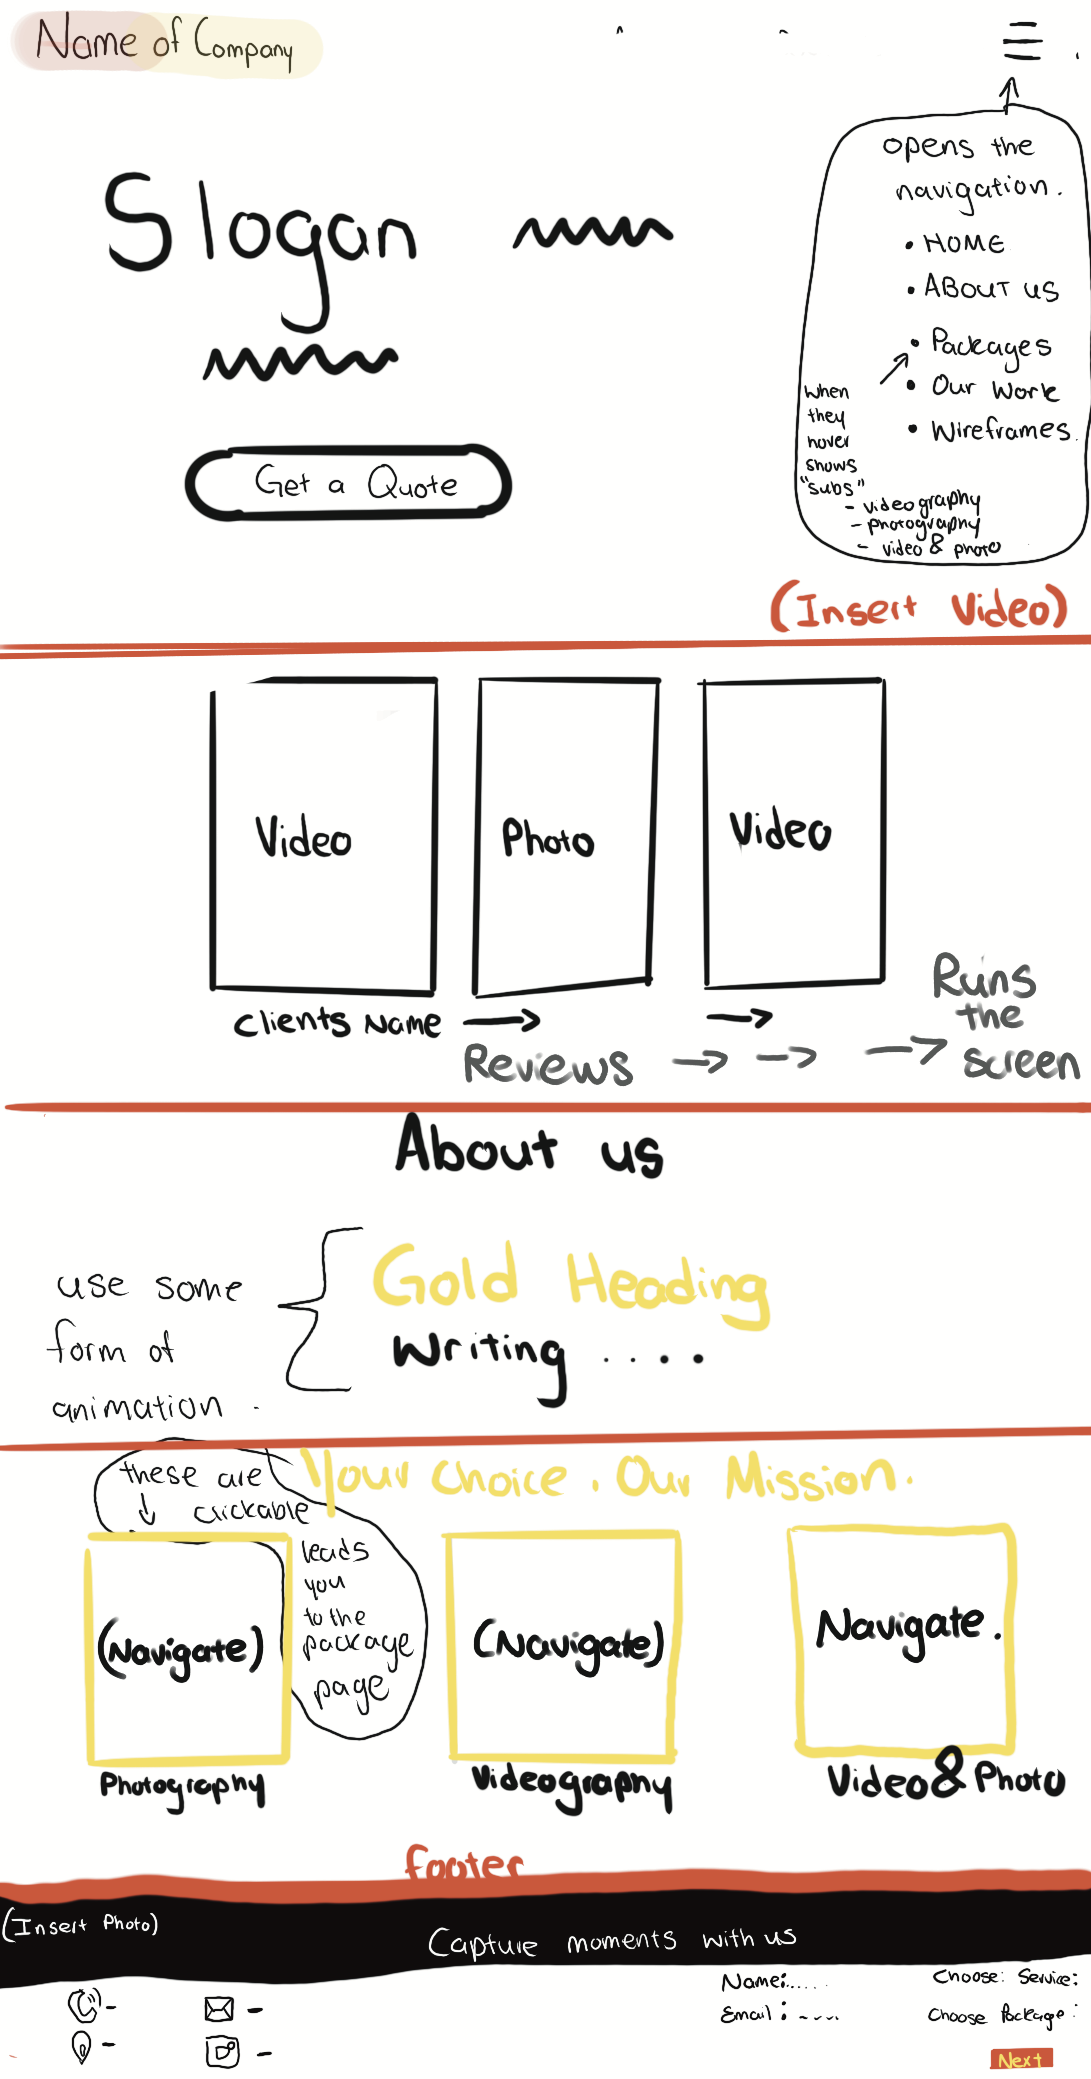 Name of Company
opens the
navigation.
• HOME
• ABOUT US
• Packages
• Our Work
• Wireframes.
when
they
hover
shows
"subs"
- videography
- photography
- video & photo
Slogan
Get a Quote
(Insert Video)
Video
Photo
Video
Clients Name
Reviews
Runs
the
screen
About us
use some
form of
animation.
Gold Heading
Writing ....
these are
clickable
leads
you
to the
package
page
Your Choice. Our Mission.
(Navigate)
(Navigate)
Navigate.
Photography
Videography
Video & Photo
footer
(Insert Photo)
Capture moments with us
Name:.....
Email: ----
Choose: Service:
Choose Package:
Next